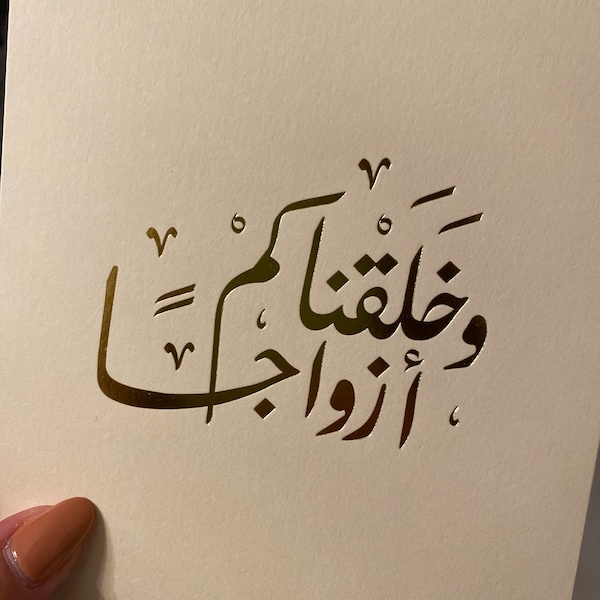 وَخَلَقْنَاكُمْ
أَزْوَاجًا